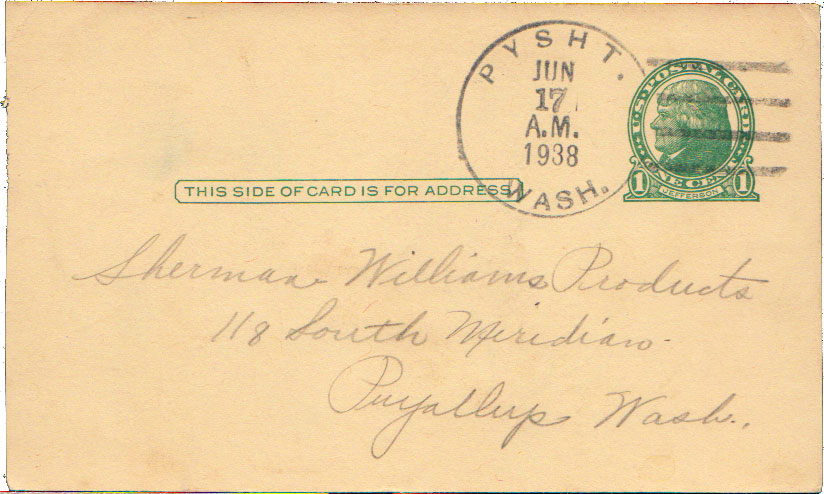 PYSHT.
JUN
17
A.M.
1938
WASH.
U.S. POSTAL CARD
ONE CENT
1 JEFFERSON 1
THIS SIDE OF CARD IS FOR ADDRESS
Sherman Williams Products
118 South Meridian
Puyallup Wash.